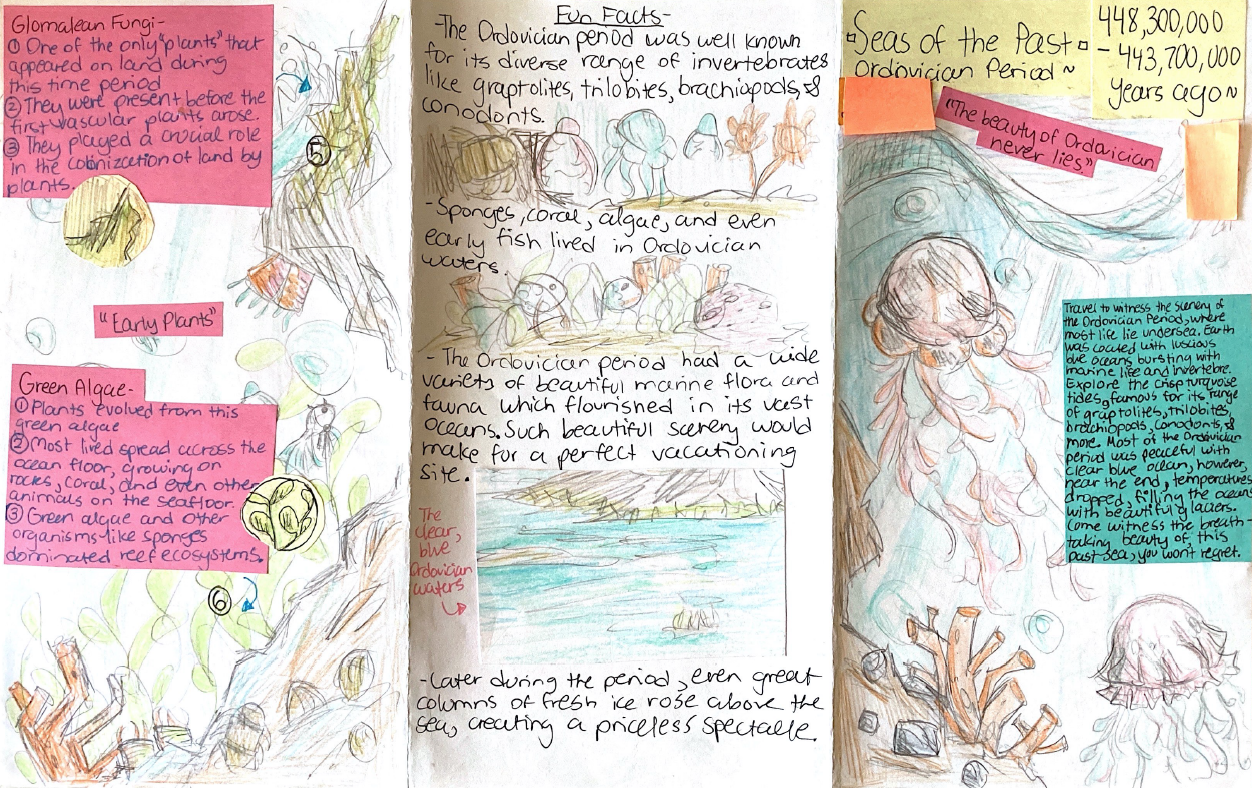 Glomalean Fungi-
① One of the only "plants" that
appeared on land during
this time period
② They were present before the
first vascular plants arose.
③ They played a crucial role
in the colonization of land by
plants.
5
"Early Plants"
Green Algae-
① Plants evolved from this
green algae
② Most lived spread across the
ocean floor, growing on
rocks, coral, and even other
animals on the seafloor.
③ Green algae and other
organisms like sponges
dominated reef ecosystems.
6
Fun Facts-
-The Ordovician period was well known
for its diverse range of invertebrates
like graptolites, trilobites, brachiopods, &
conodonts.
-Sponges, coral, algae, and even
early fish lived in Ordovician
waters.
-The Ordovician period had a wide
variety of beautiful marine flora and
fauna which flourished in its vast
oceans. Such beautiful scenery would
make for a perfect vacationing
site.
The
clear,
blue
Ordovician
waters
-Later during the period, even great
columns of fresh ice rose above the
sea, creating a priceless spectacle.
Seas of the Past
Ordovician Period~
448,300,000
- 443,700,000
years ago~
"The beauty of Ordovician
never lies"
Travel to witness the scenery of
the Ordovician Period, where
most life lie undersea. Earth
was coated with luscious
blue oceans bursting with
marine life and invertebre.
Explore the crisp turquoise
tides, famous for its range
of graptolites, trilobites,
brachiopods, conodonts, &
more. Most of the Ordovician
period was peaceful with
clear blue ocean, however,
near the end, temperatures
dropped, filling the ocean
with beautiful glaciers.
Come witness the breath-
taking beauty of this
past sea, you won't regret.